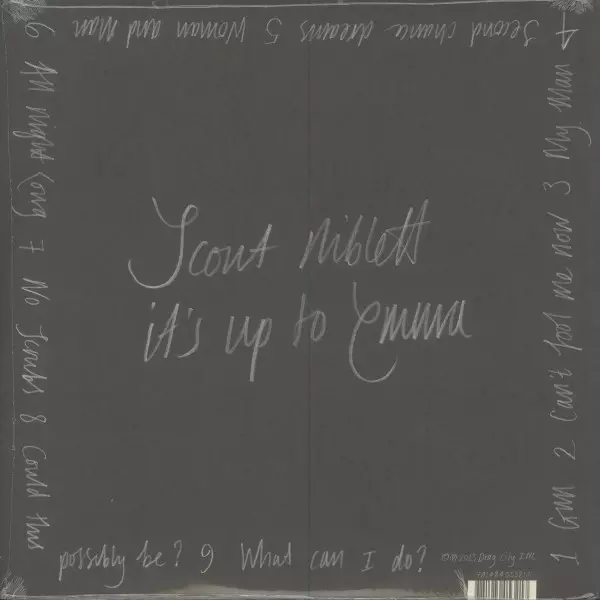 Scout Niblett
it's up to Emma
1 Gun 2 Can't fool me now 3 My Man
4 Second chance dreams 5 Woman and Man
6 All Night Long 7 No Scrubs 8 Could this
possibly be? 9 What can I do?
℗© 2013, Drag City INC.